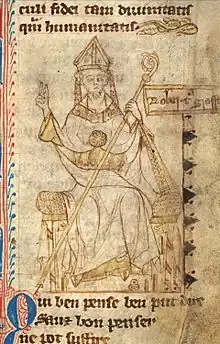 culi fidei tam diuinitatis
qͥ humanitatis.
Robert' Gros
Qui ben pense ben put dire
Sanz bon penser
ne pot suffire